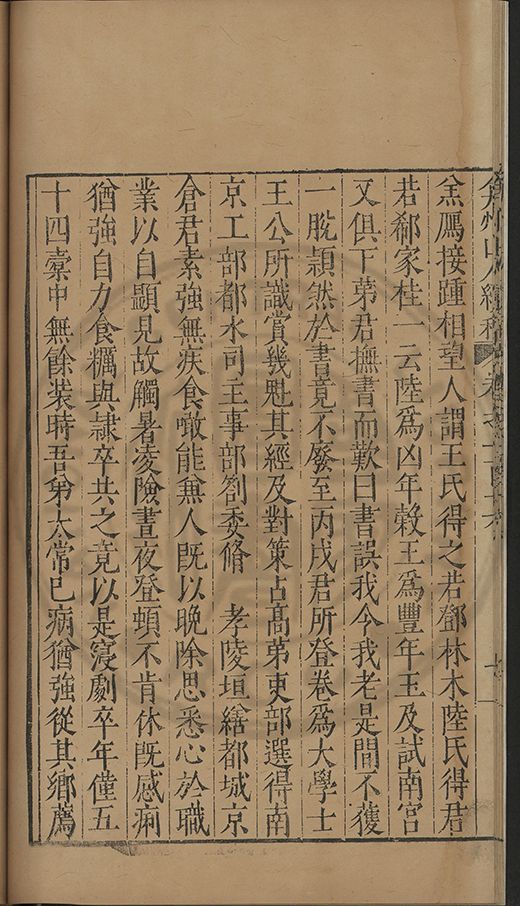 弇州山人續稿 卷之一百十六 七
羔鴈接踵相望人謂王氏得之若鄧林木陸氏得君
若郗家桂一云陸爲凶年榖王爲豐年玉及試南宮
又俱下苐君撫書而歎曰書誤我今我老是間不獲
一脫頴然於書竟不廢至丙戌君所登卷爲大學士
王公所識賞幾魁其經及對策占髙苐吏部選得南
京工部都水司主事部劄委脩 孝陵垣繕都城京
倉君素強無疾食噉能兼人既以晩除思悉心於職
業以自顯見故觸暑凌險晝夜登頓不肯休既感痢
猶強自力食糲與隷卒共之竟以是寖劇卒年僅五
十四橐中無餘裝時吾苐太常已病猶強從其鄉薦